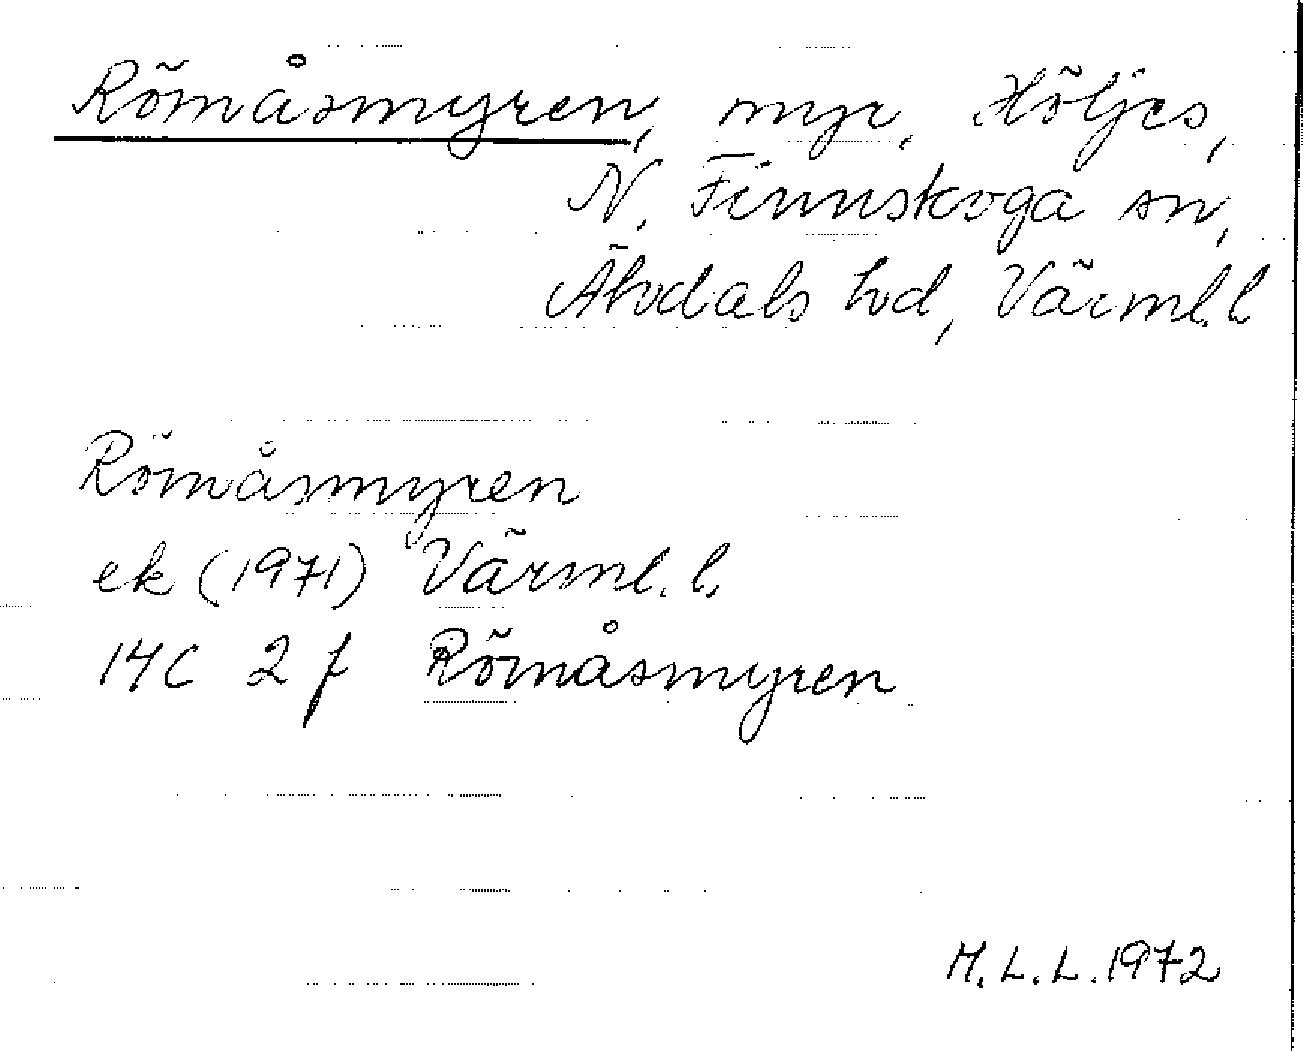 Römåsmyren, myr. Höljes,
N. Finnskoga sn,
Älvdals hd, Värml. l
Römåsmyren
ek (1971) Värml. l.
17C 2 f Römåsmyren
M.L.L. 1972